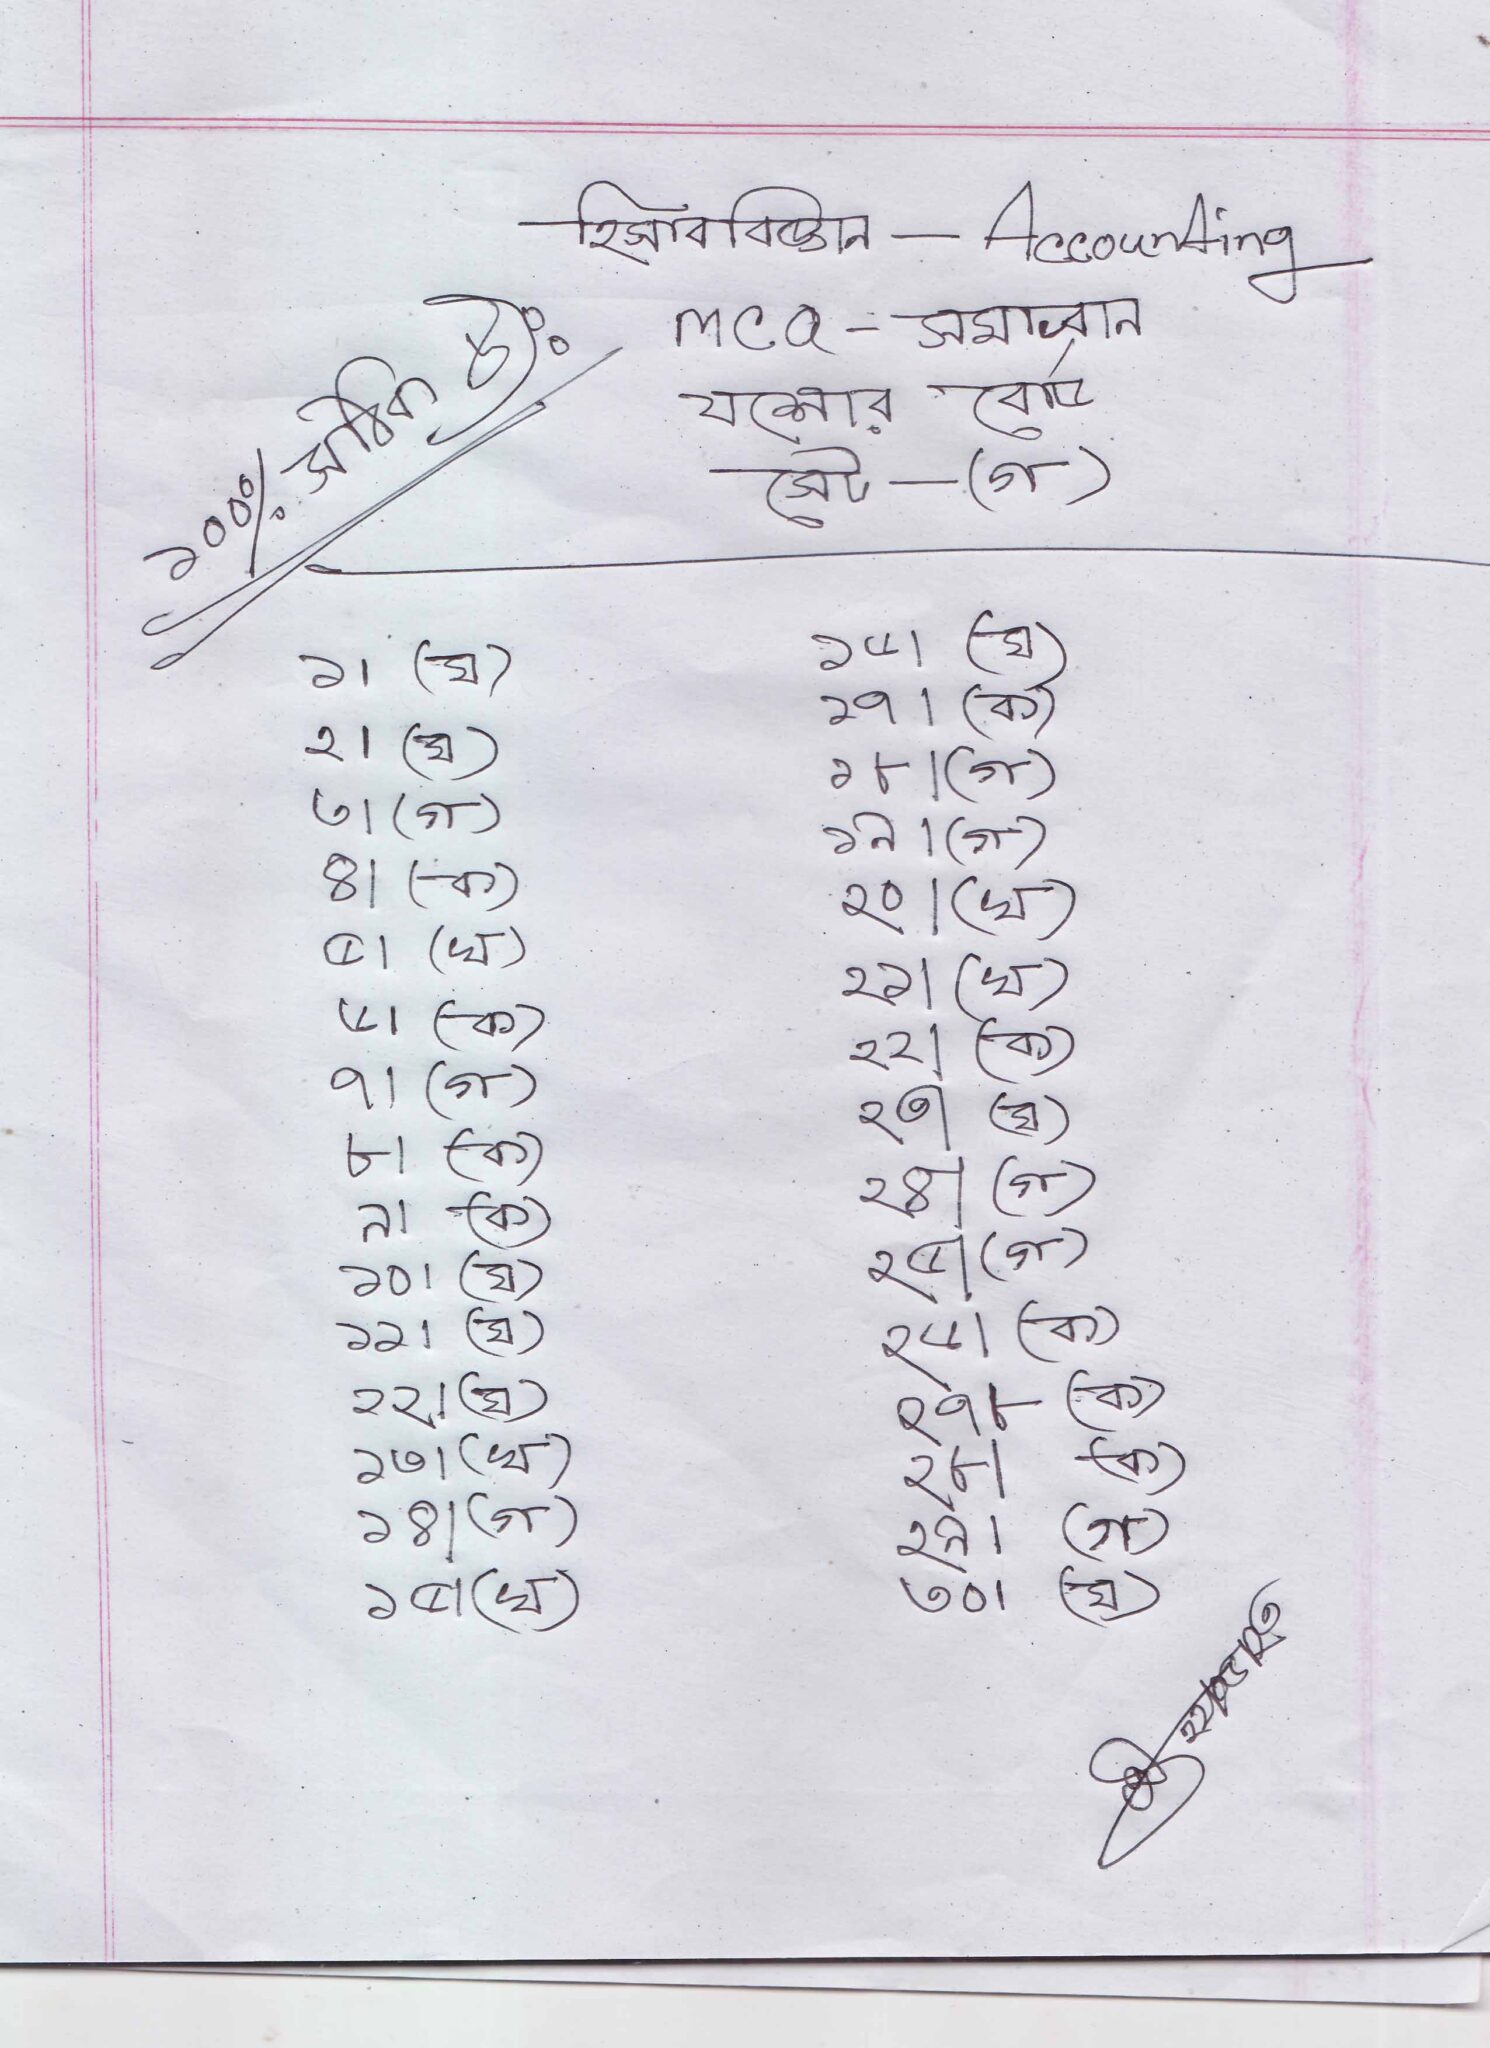 হিসাববিজ্ঞান — Accounting
MCQ - সমাধান
যশোর বোর্ড
সেট — (গ)
১০০% সঠিক
১। (ঘ)
২। (ঘ)
৩। (গ)
৪। (ক)
৫। (খ)
৬। (ক)
৭। (গ)
৮। (ক)
৯। (ক)
১০। (ঘ)
১১। (ঘ)
২২। (ঘ)
১৩। (খ)
১৪। (গ)
১৫। (খ)
১৬। (ঘ)
১৭। (ক)
১৮। (গ)
১৯। (গ)
২০। (খ)
২১। (খ)
২২। (ক)
২৩। (ঘ)
২৪। (গ)
২৫। (গ)
২৬। (ক)
২৭৮ (ক)
২৮। (ক)
২৯। (গ)
৩০। (ঘ)